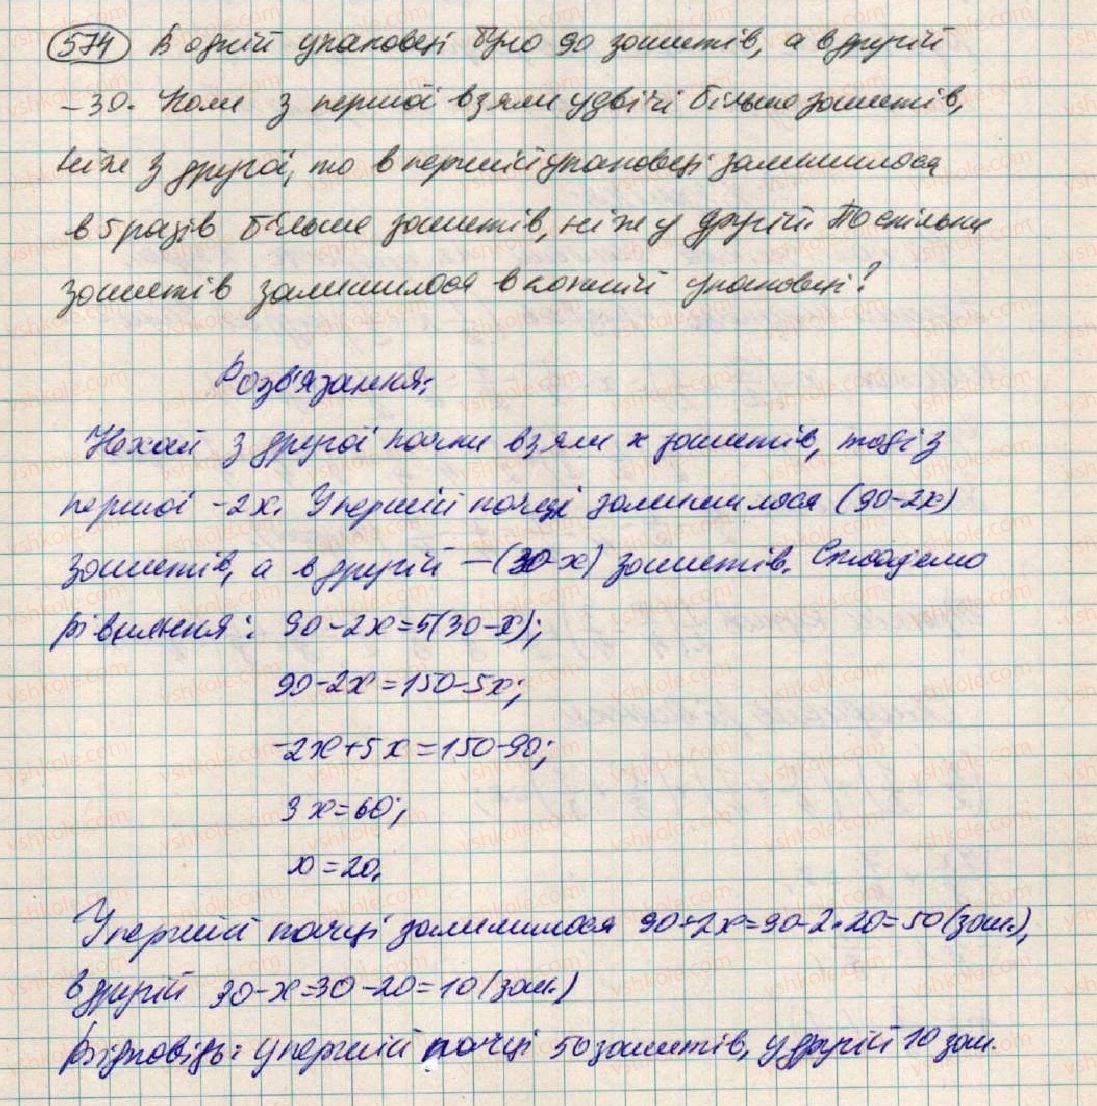 574 В одній упаковці було 90 зошитів, а в другій
– 30. Коли з першої взяли удвічі більше зошитів,
ніж з другої, то в першій упаковці залишилося
в 5 разів більше зошитів, ніж у другій. По скільки
зошитів залишилося в кожній упаковці?
Розв'язання:
Нехай з другої пачки взяли x зошитів, тоді з
першої – 2x. У першій пачці залишилося (90-2x)
зошитів, а в другій – (30-x) зошитів. Складемо
рівняння: 90-2x=5(30-x);
90-2x=150-5x;
-2x+5x=150-90;
3x=60;
x=20.
У першій пачці залишилося 90-2x=90-2·20=50(зош.),
в другій 30-x=30-20=10(зош.)
Відповідь: у першій пачці 50 зошитів, у другій 10 зош.